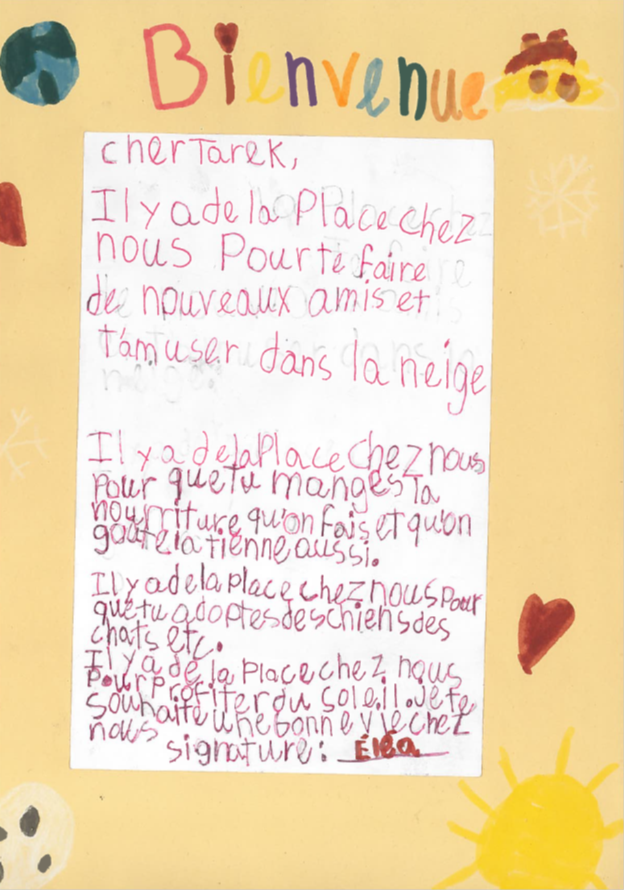 Bienvenue
cher Tarek,
Il y a de la Place chez
nous Pour te faire
de nouveaux amis et
t'amuser dans la neige
Il y a de la Place chez nous
Pour que tu manges ta
nourriture qu'on fais et qu'on
goûte la tienne aussi.
Il y a de la place chez nous pour
que tu adoptes des chiens des
chats etc.
Il y a de la Place chez nous
pour profiter du soleil. Je te
souhaite une bonne vie chez
nous
signature: Éléa